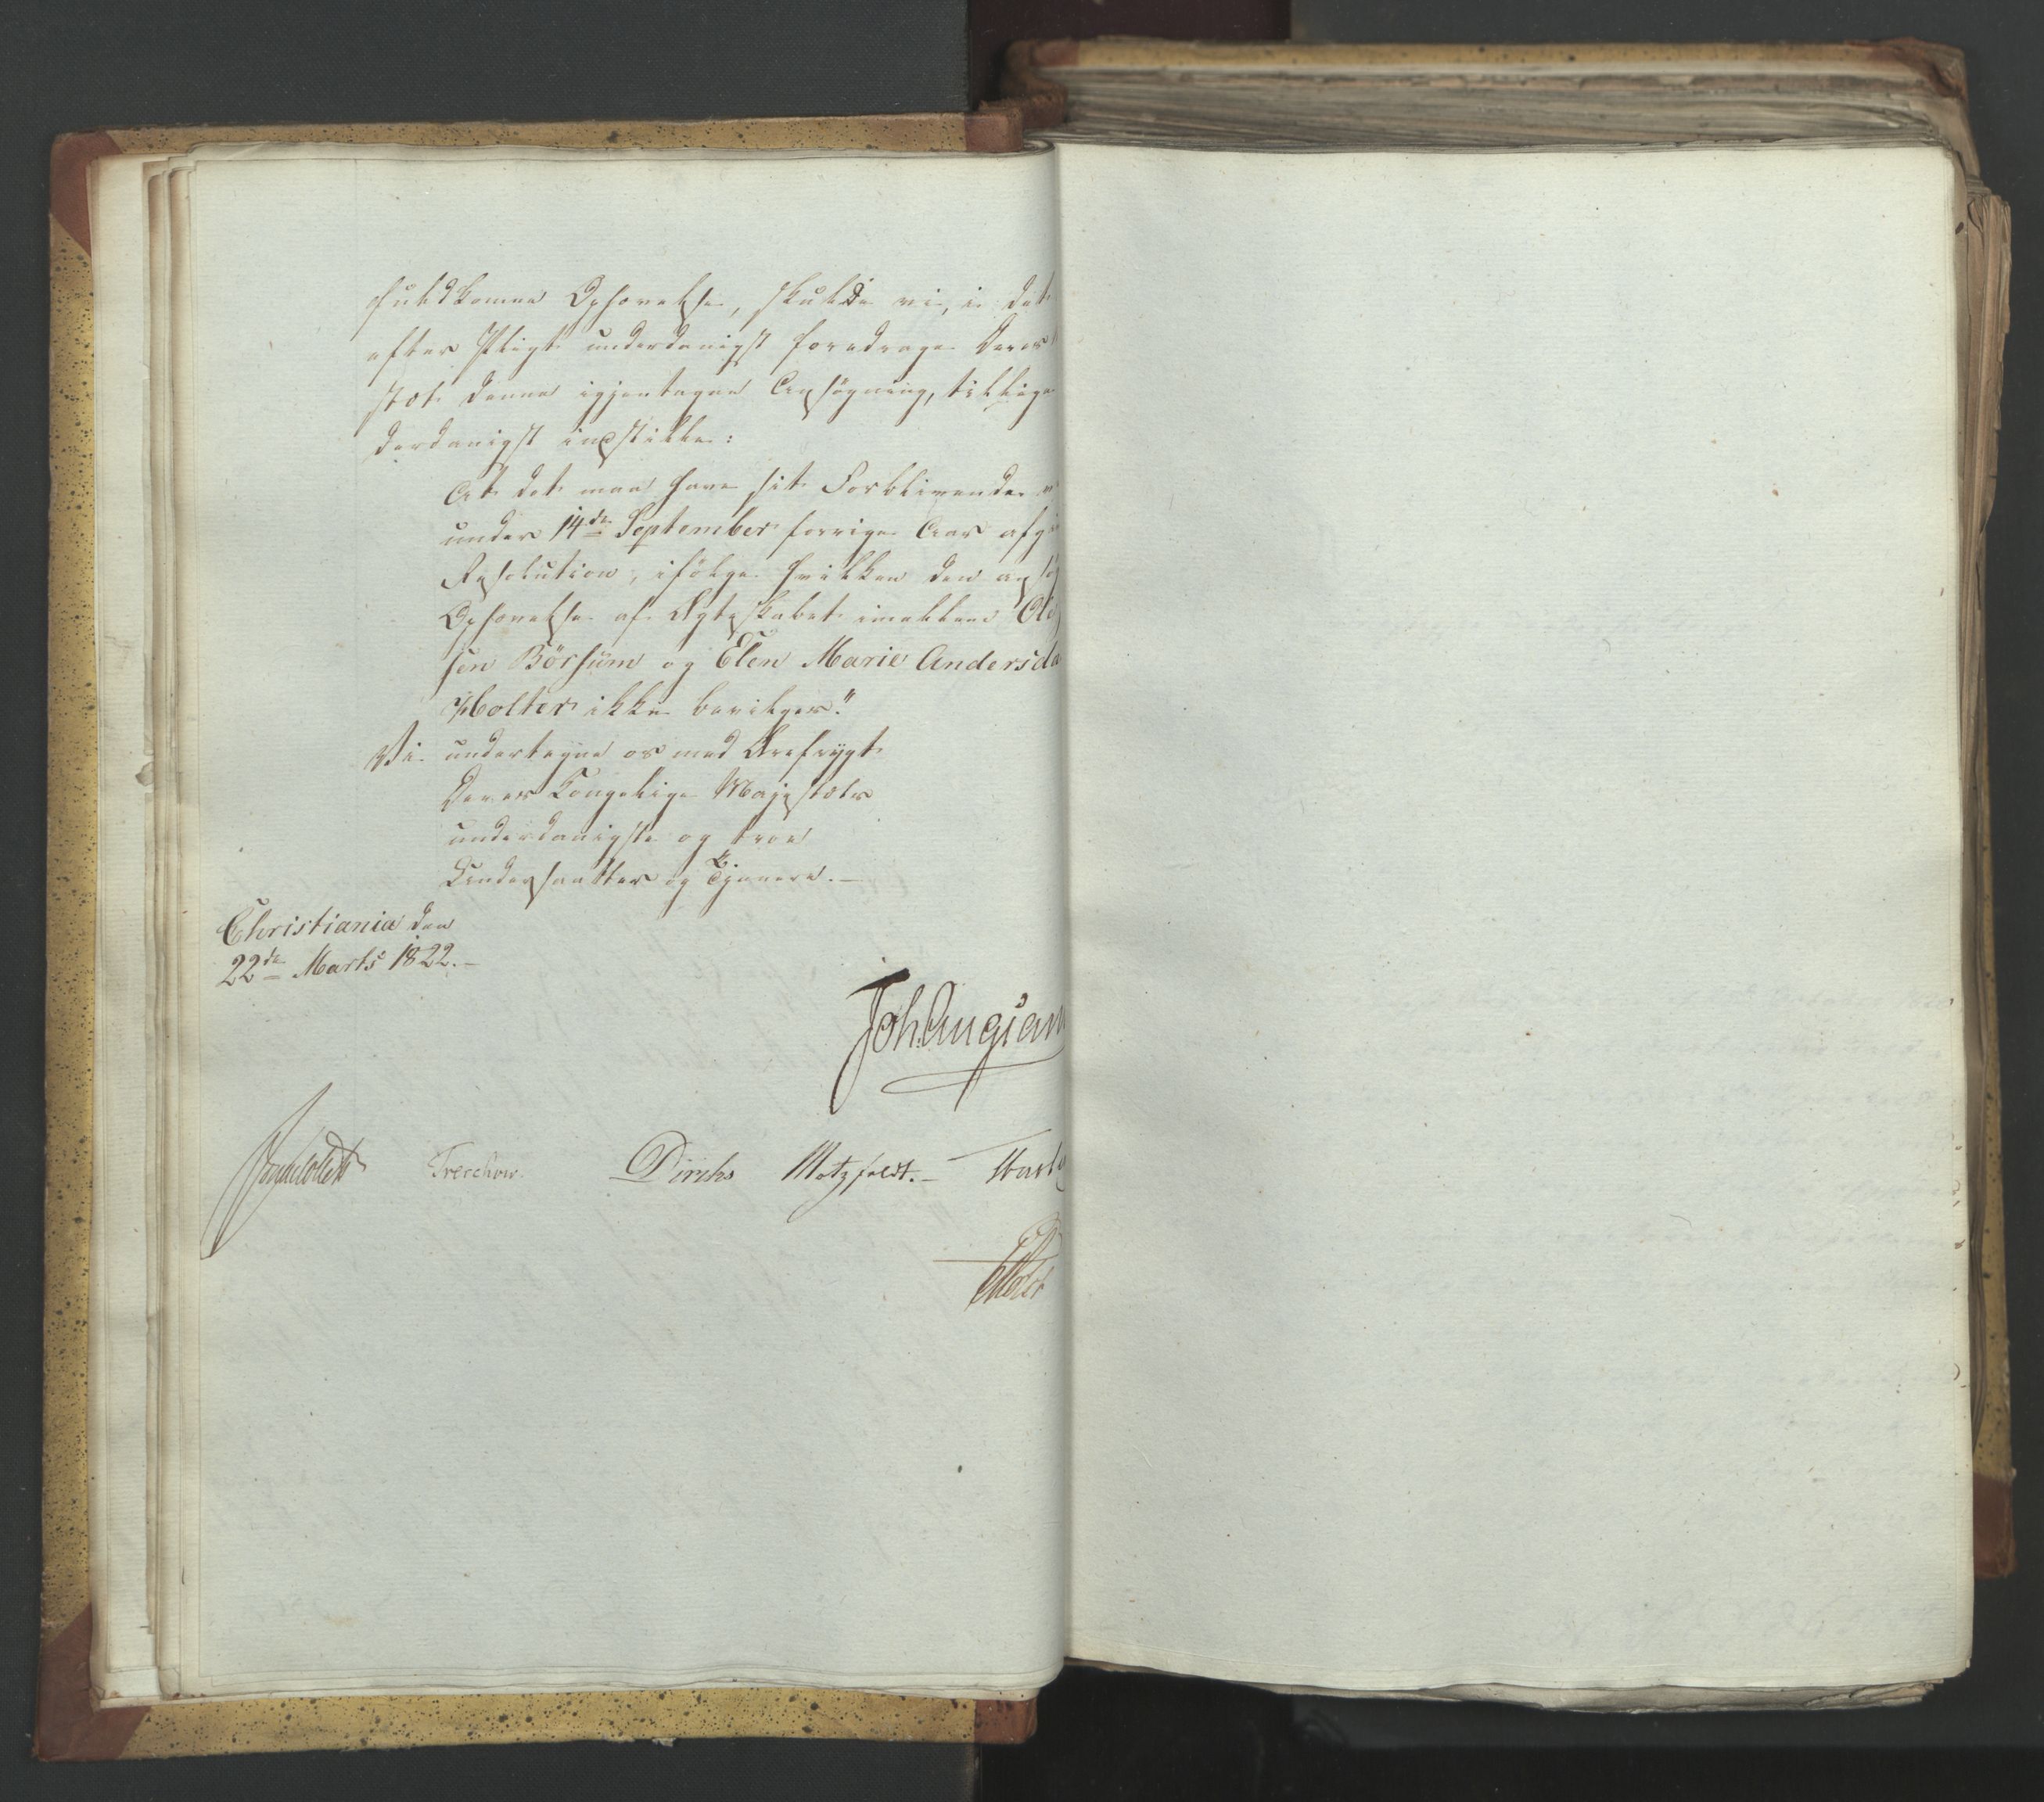 fuldkomne Ophævelse, skulde vi, i det
efter Pligt underdanigst foredrage Deres
stæt denne igjentagne Ansögning, tillige
derdanigst indstille:
At det maa have sit Forblivende
under 14de September forrige Aar afg
Resolution, ifölge hvilken den ansög
Ophævelse af Ægteskabet imellem Ole
sen Börsum og Elen Marie Andersda
Holter ikke bevilges."
Vi undertegne os med Ærefrygt
Deres Kongelige Majestæts
underdanigste og troe
Undersaatter og Tjenere.-
Christiania den
22de Marts 1822.-
Joh. Aug: San
Treschow.
Diriks
Motzfeldt.-